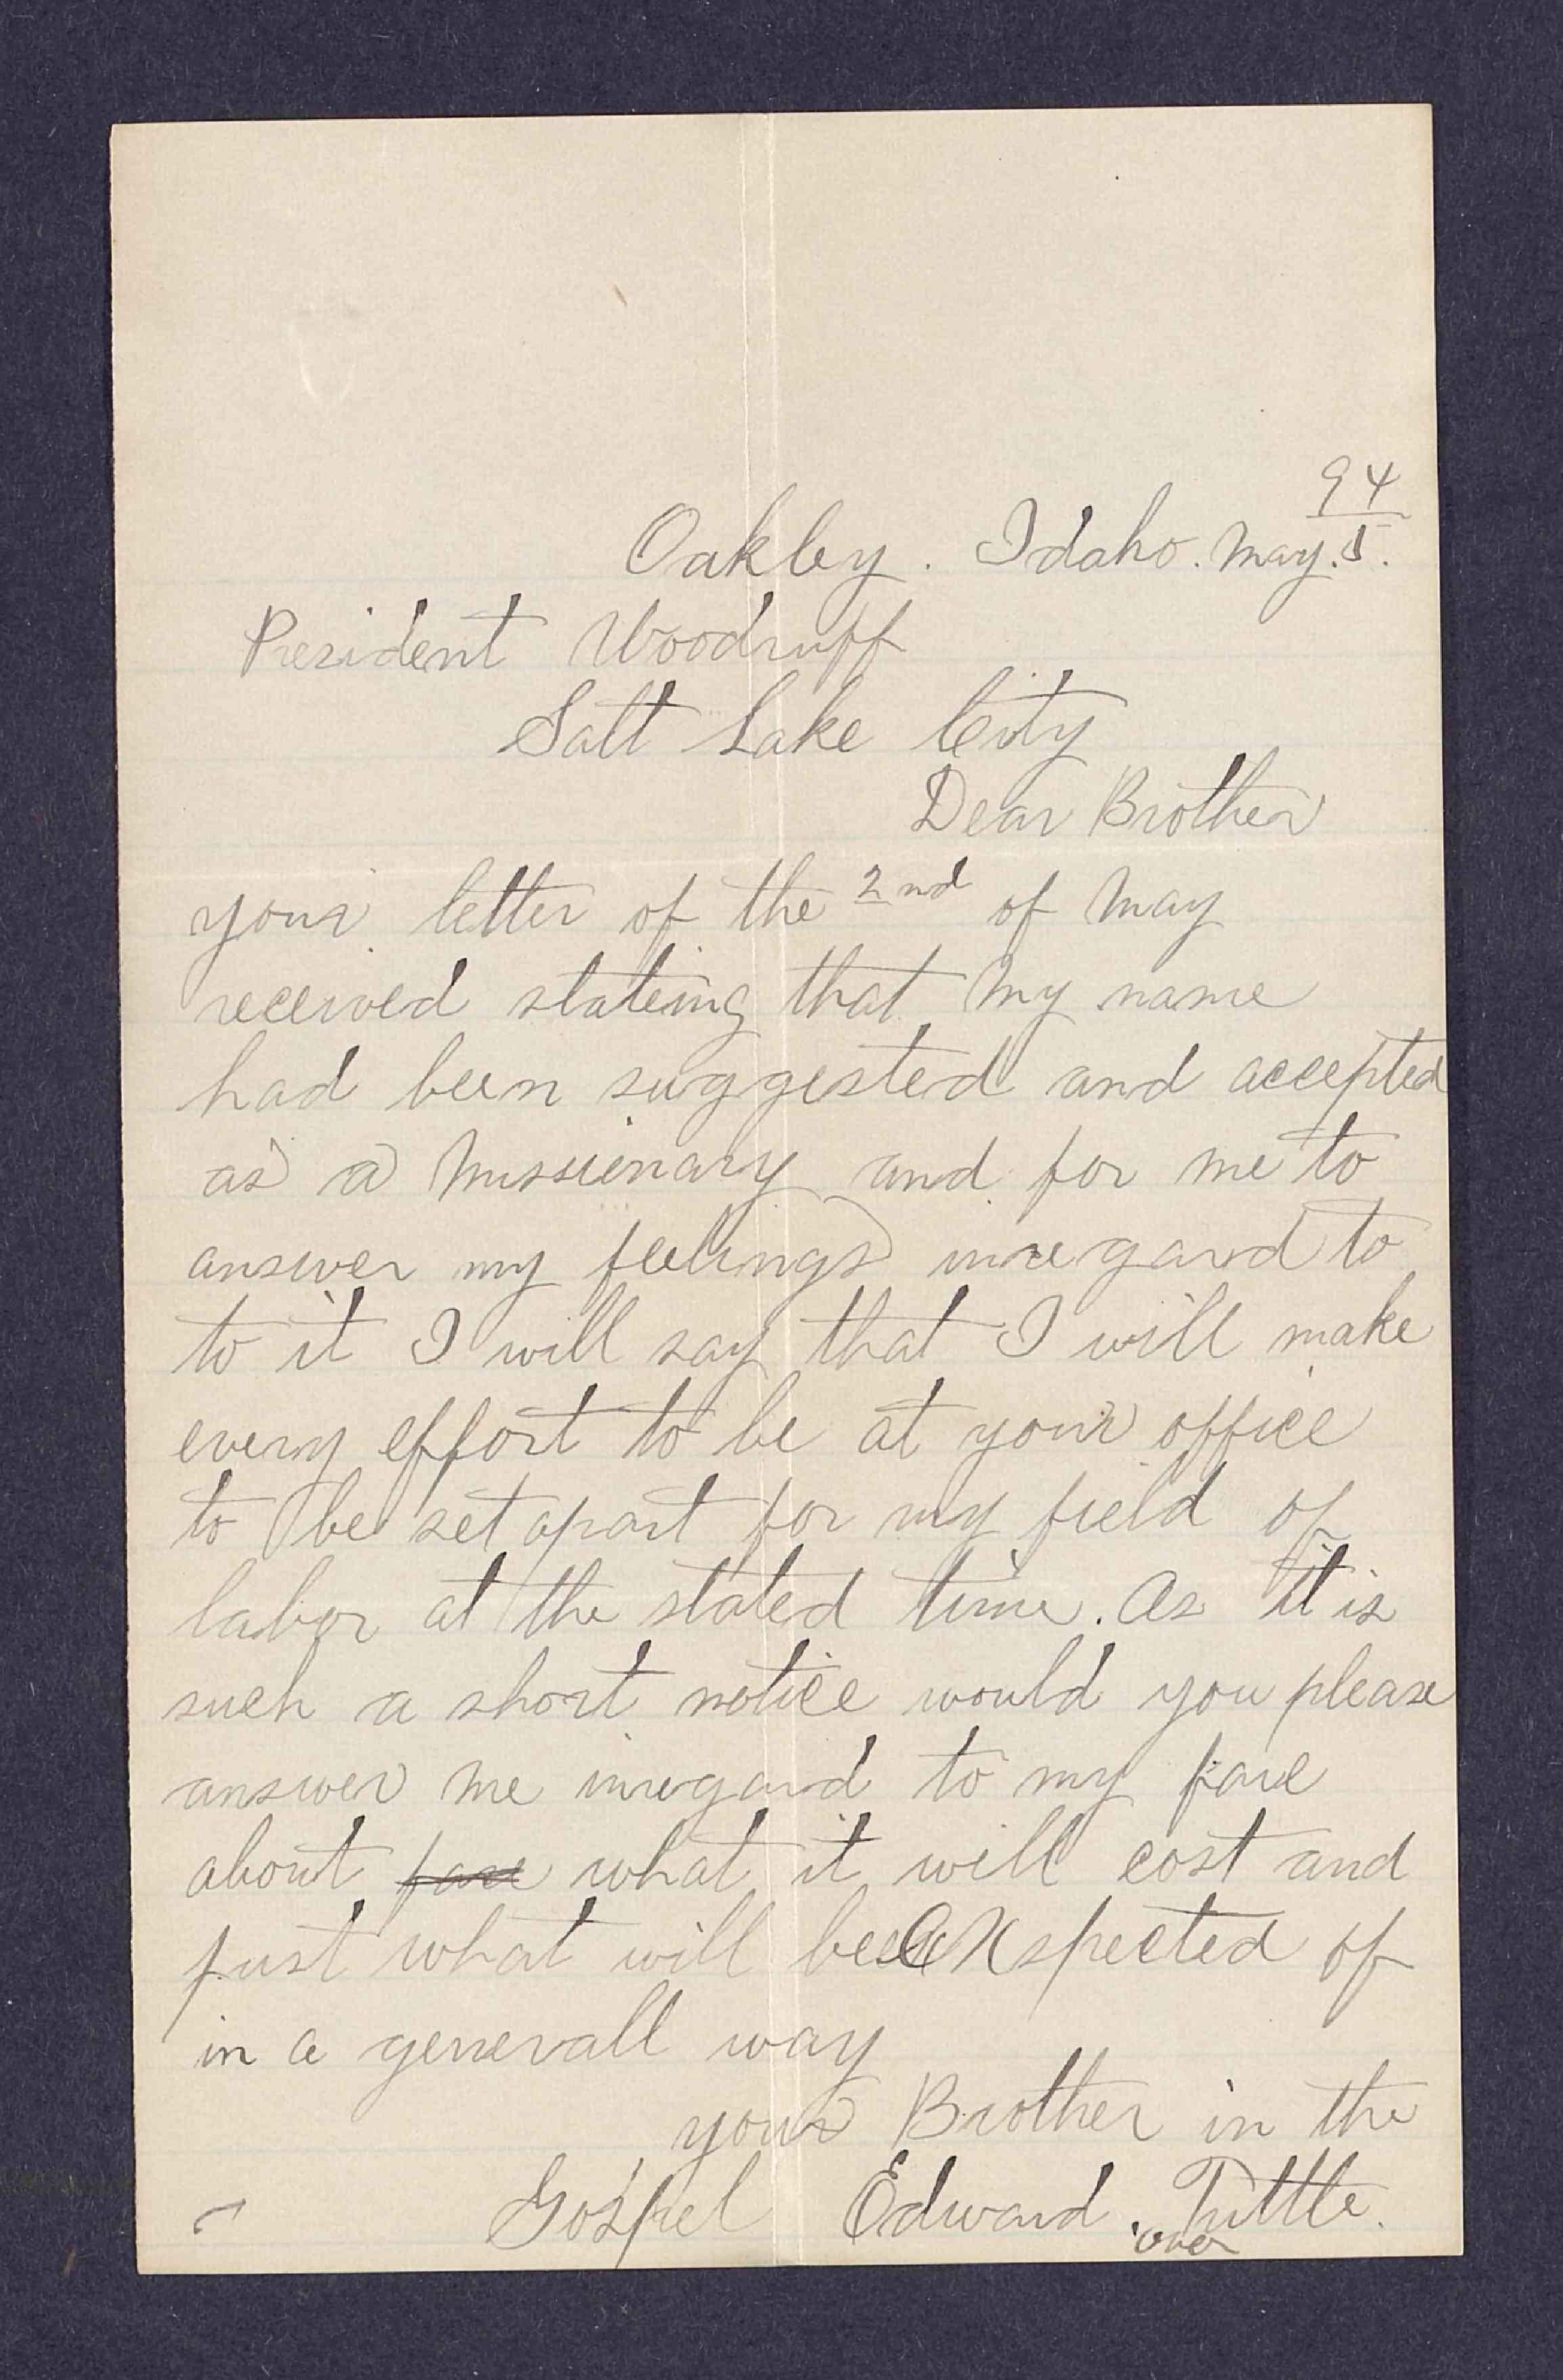 94
Oakley. Idaho. May. 5.
President Woodruff
Salt Lake City
Dear Brother
your letter of the 2nd of May
received stateing that my name
had been suggested and accepted
as a Missienary and for me to
answer my feelings inregard to
to it I will say that I will make
every effort to be at your office
to be set apart for my field of
labor at the stated time. As it is
such a short notice would you please
answer me inregard to my fare
about fare what it will cost and
just what will be exspected of
in a generall way
your Brother in the
Gospel Edward. Tuttle.
over